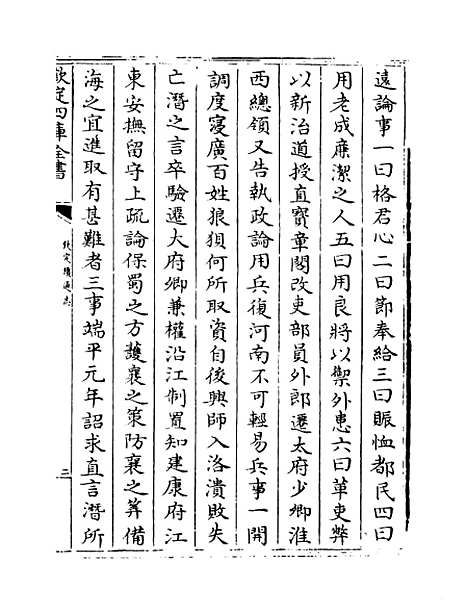 遠論事一曰格君心二曰節奉給三曰賑恤都民四曰
用老成廉潔之人五曰用良將以禦外患六曰革吏弊
以新治道授直寳章閣改吏部員外郎遷太府少卿淮
西總領又告執政論用兵復河南不可輕易兵事一開
調度寖廣百姓狼狽何所取資自後興師入洛潰敗失
亡潛之言卒驗遷太府卿兼權沿江制置知建康府江
東安撫留守上疏論保蜀之方護襄之策防襄之筭備
海之宜進取有甚難者三事端平元年詔求直言潛所
欽定四庫全書
欽定續通志
三